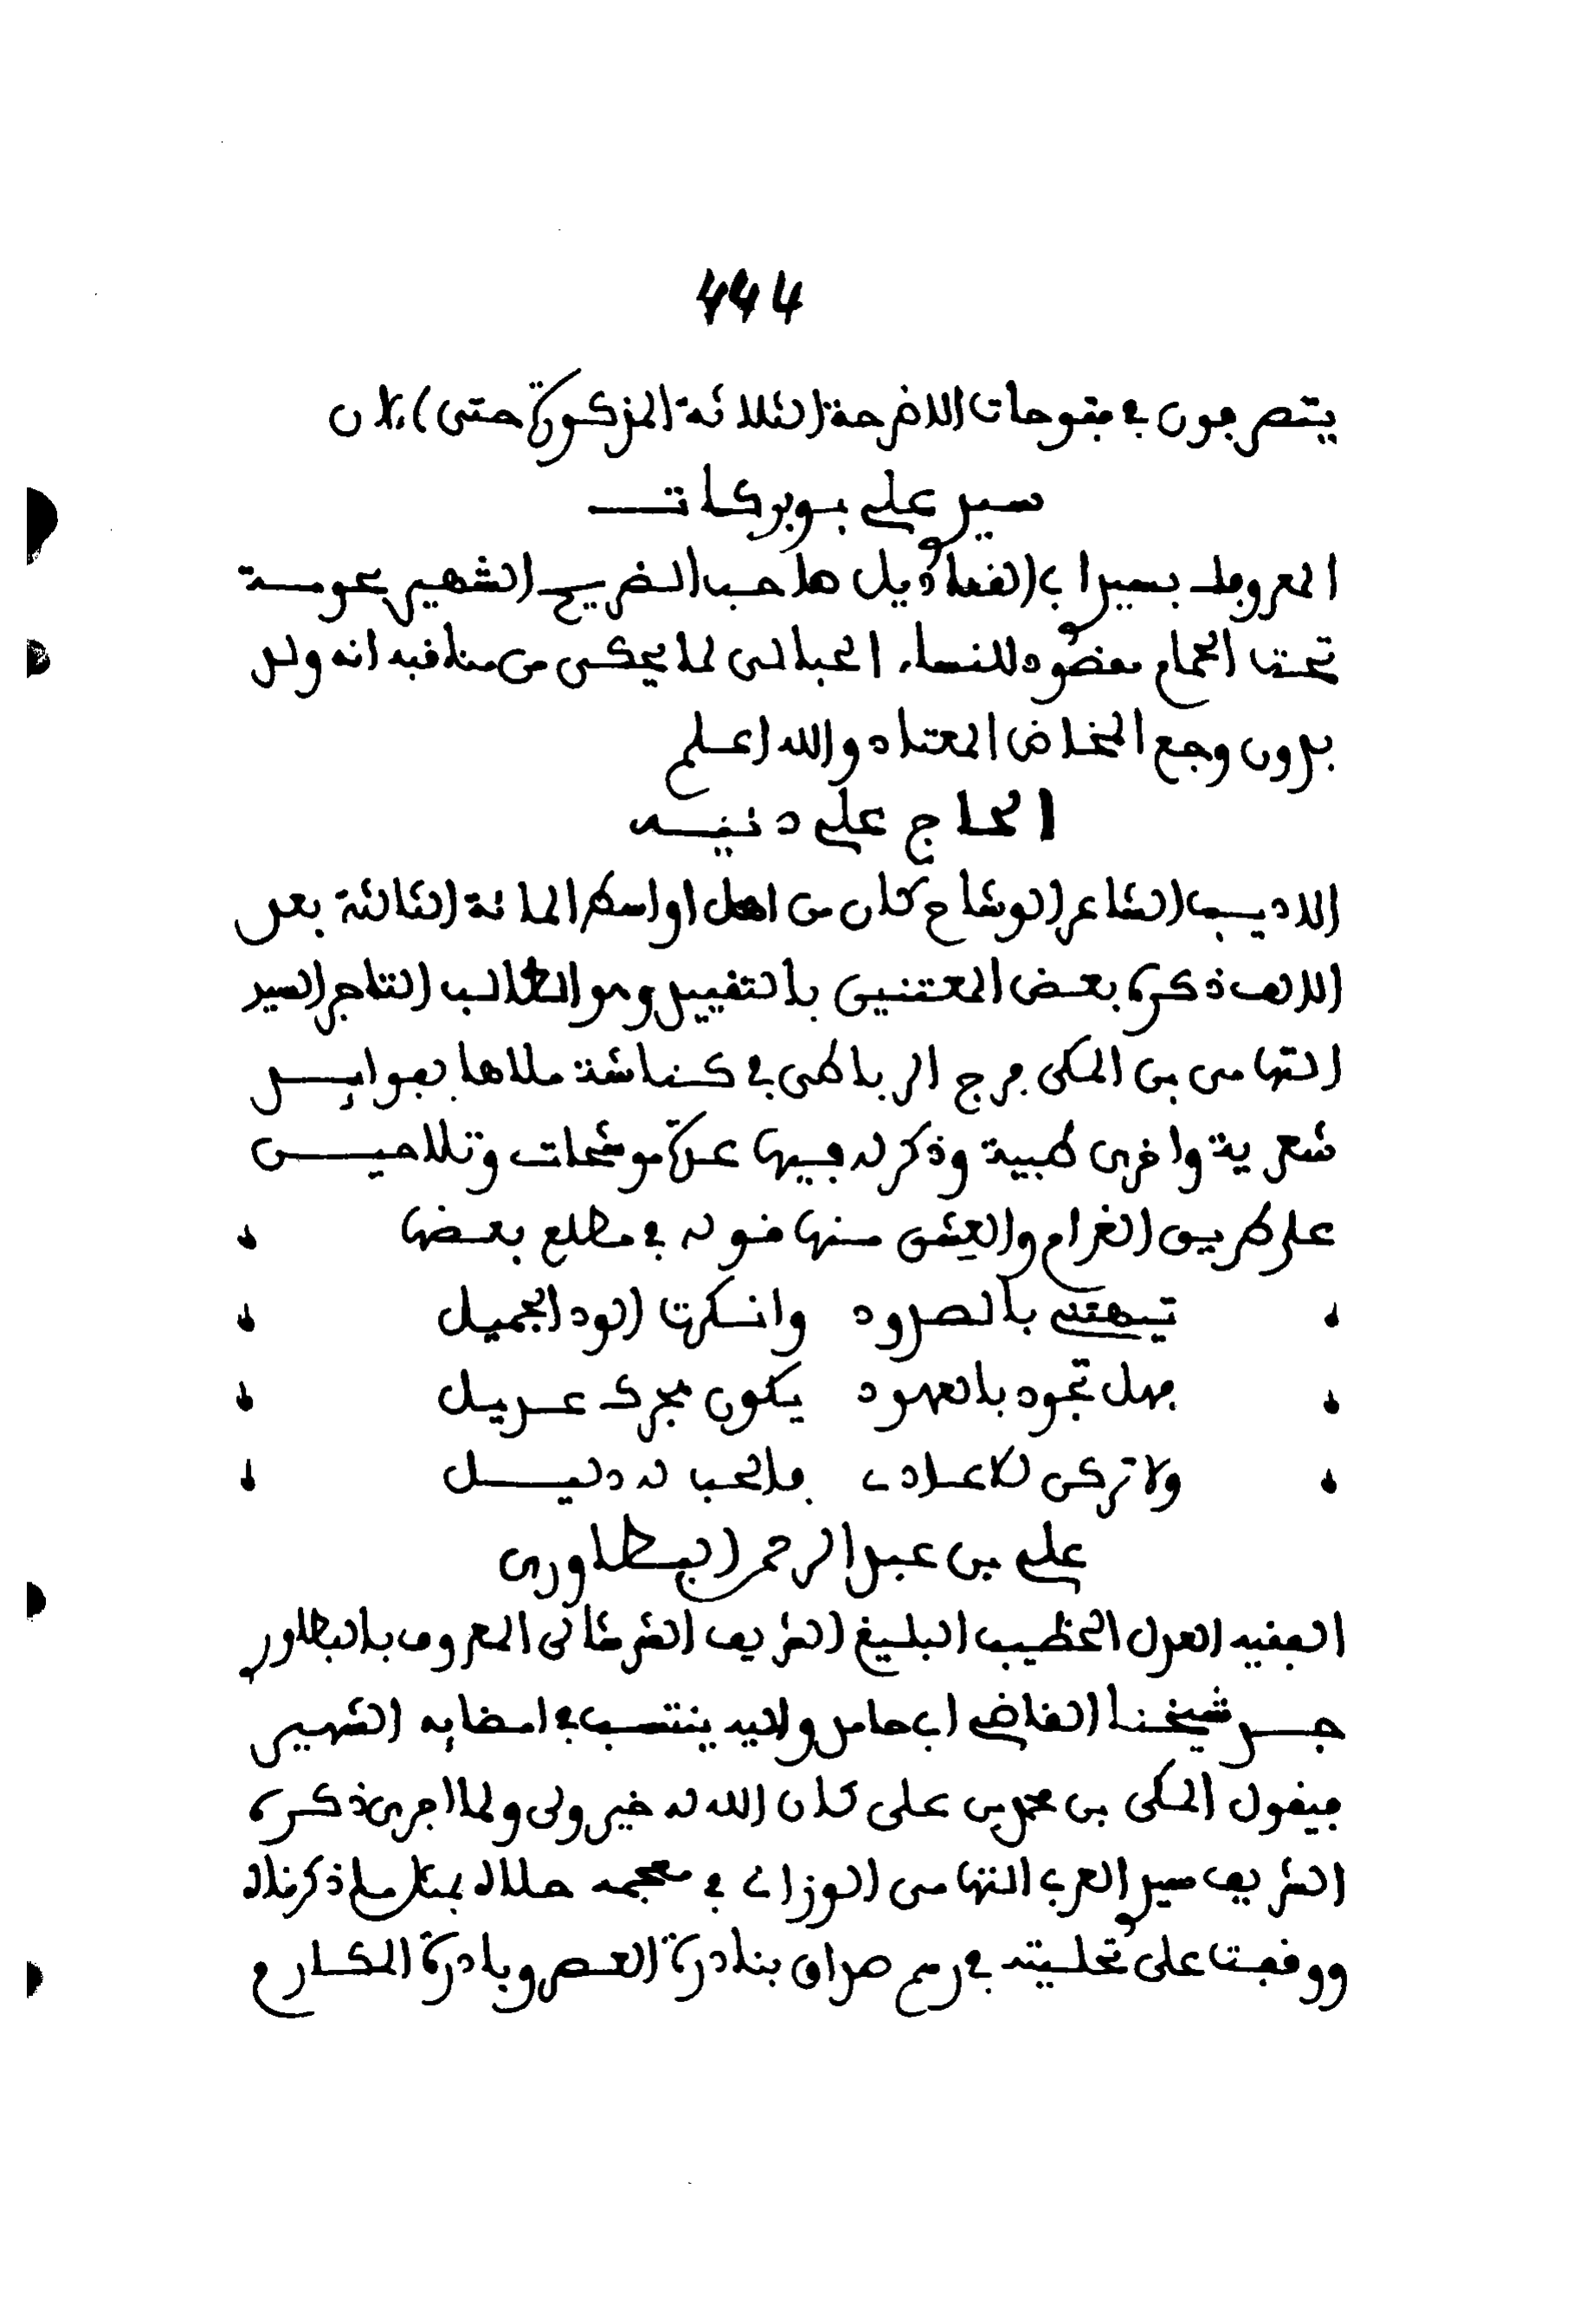 444
يتصرفون في فتوحات الاضرحة الثلاثة المذكورة حتى الان
سيد علي بوبركات
المعروف بسيد ابي القناديل صاحب الضريح الشهير بحومة
تحت الحمام مقصود للنساء الحبالى لما يحكى من مناقبه انه ولد
بدون وجع المخاض المعتاد والله اعلم
الحاج علي دنيه
الاديب الشاعر الوشاح كان من اهل اواسط المائة الثالثة بعد
الالف ذكره بعض المعتنين بالتقييد وهو الطالب التاجر السيد
التهامي بن المكي فرج الرباطي في كناشة ملاها بفوايد
شعرية واخرى طبية وذكر له فيها عدة موشحات وتلاحين
على طريق الغرام والعشق منها قوله في مطلع بعضها
تيهتني بالصدود وانكرت الود الجميل
فهل تجود بالعهود يكون مجدك عديل
ولا تركن للاعادي فالحب له دليل
علي بن عبد الرحمن البطاوري
الفقيه العدل الخطيب البليغ الشريف الشرشالي المعروف بالبطاوري
جد شيخنا القاضي ابي حامد واليه ينتسب في امضايه الشهير
فيقول المكي بن محمد بن علي كان الله له خير ولي ولما اجرى ذكره
الشريف سيد العربي التهامي الوزاني في معجمه حلاه بمثل ما ذكرناه
ووقفت على تحليته في رسم صداق بنادرة العصر وبادرة المكارم